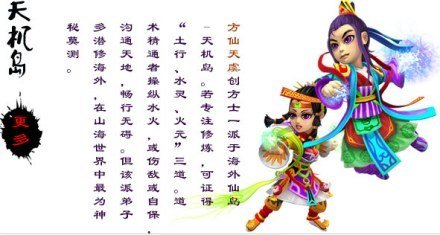 方仙天虞创方士一派于海外仙岛
-天机岛。若专注修炼，可证得
“土行、水灵、火元”三道。道
术精通者操纵水火，或伤敌或自保，
沟通天地，畅行无碍。但该派弟子
多潜修海外，在山海世界中最为神
秘莫测。
天机岛
更多